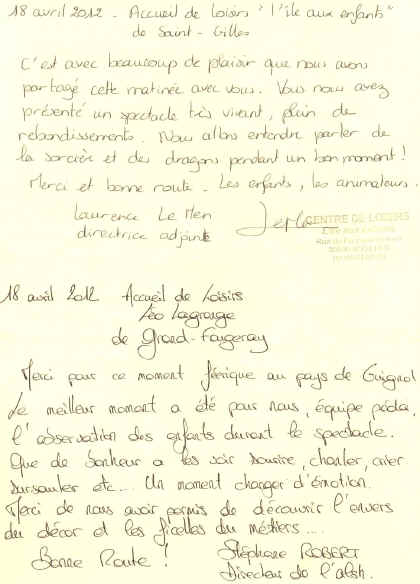 18 avril 2012. Accueil de Loisirs "l'île aux enfants"
de Saint-Gilles
C'est avec beaucoup de plaisir que nous avons
partagé cette matinée avec vous. Vous nous avez
présenté un spectacle très vivant, plein de
rebondissements. Nous allons entendre parler de
la sorcière et des dragons pendant un bon moment!
Merci et bonne route. Les enfants, les animateurs.
Laurence Le Hen
directrice adjointe
CENTRE DE LOISIRS
18 avril 2012 Accueil de Loisirs
Léo Lagrange
de Grand-Fougeray
Merci pour ce moment féerique au pays de Guignol
Le meilleur moment a été pour nous, équipe péda,
l'observation des enfants durant le spectacle.
Que de bonheur a les voir sourire, chanter, crier
sursauter etc... Un moment charger d'émotion.
Merci de nous avoir permis de découvrir l'envers
du décor et les ficelles du métiers...
Bonne Route! Stéphane ROBERT
Directeur de l'alsh.